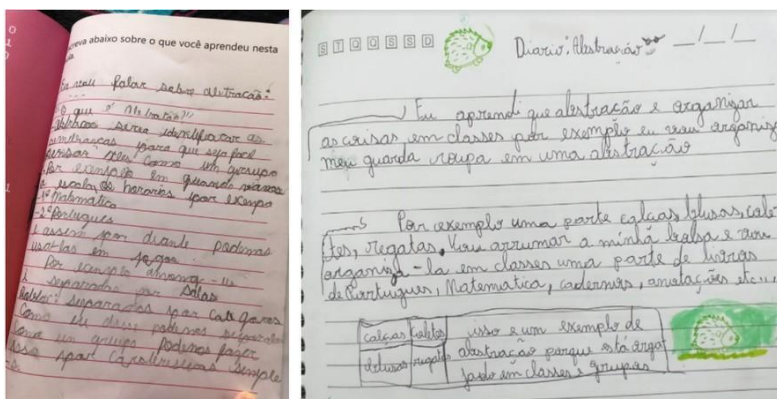 creva abaixo sobre o que você aprendeu nesta
Eu vou falar sobre abstração:
O que é Abstração?
seria identificar as
para que seja fácil
como um grupo
Por exemplo em quando vamos
a escola, os horários por exempo
-1ª Matematica
-2ª Portugues
e assim por diante podemos
usa-las em jogos
Por exemplo among-us
é separados por salas
Roblox: separados por categorias
Como eu disse podemos
como um grupo podemos fazer
isso por simples
S T Q Q S S D
Diario: Abstração __/__/__
Eu aprendi que abstração é organizar
as coisas em classes por exemplo eu vou organizar
meu guarda roupa em uma abstração
Por exemplo uma parte calças, blusas, cale
tes, regatas. Vou arrumar a minha bolsa e vou
organiza-la em classes uma parte de livros
de Portugues, Matematica, cadernos, anotações etc...
calças coletes
blusas regatas
isso é um exemplo de
abstração porque está orga
em classes e grupos